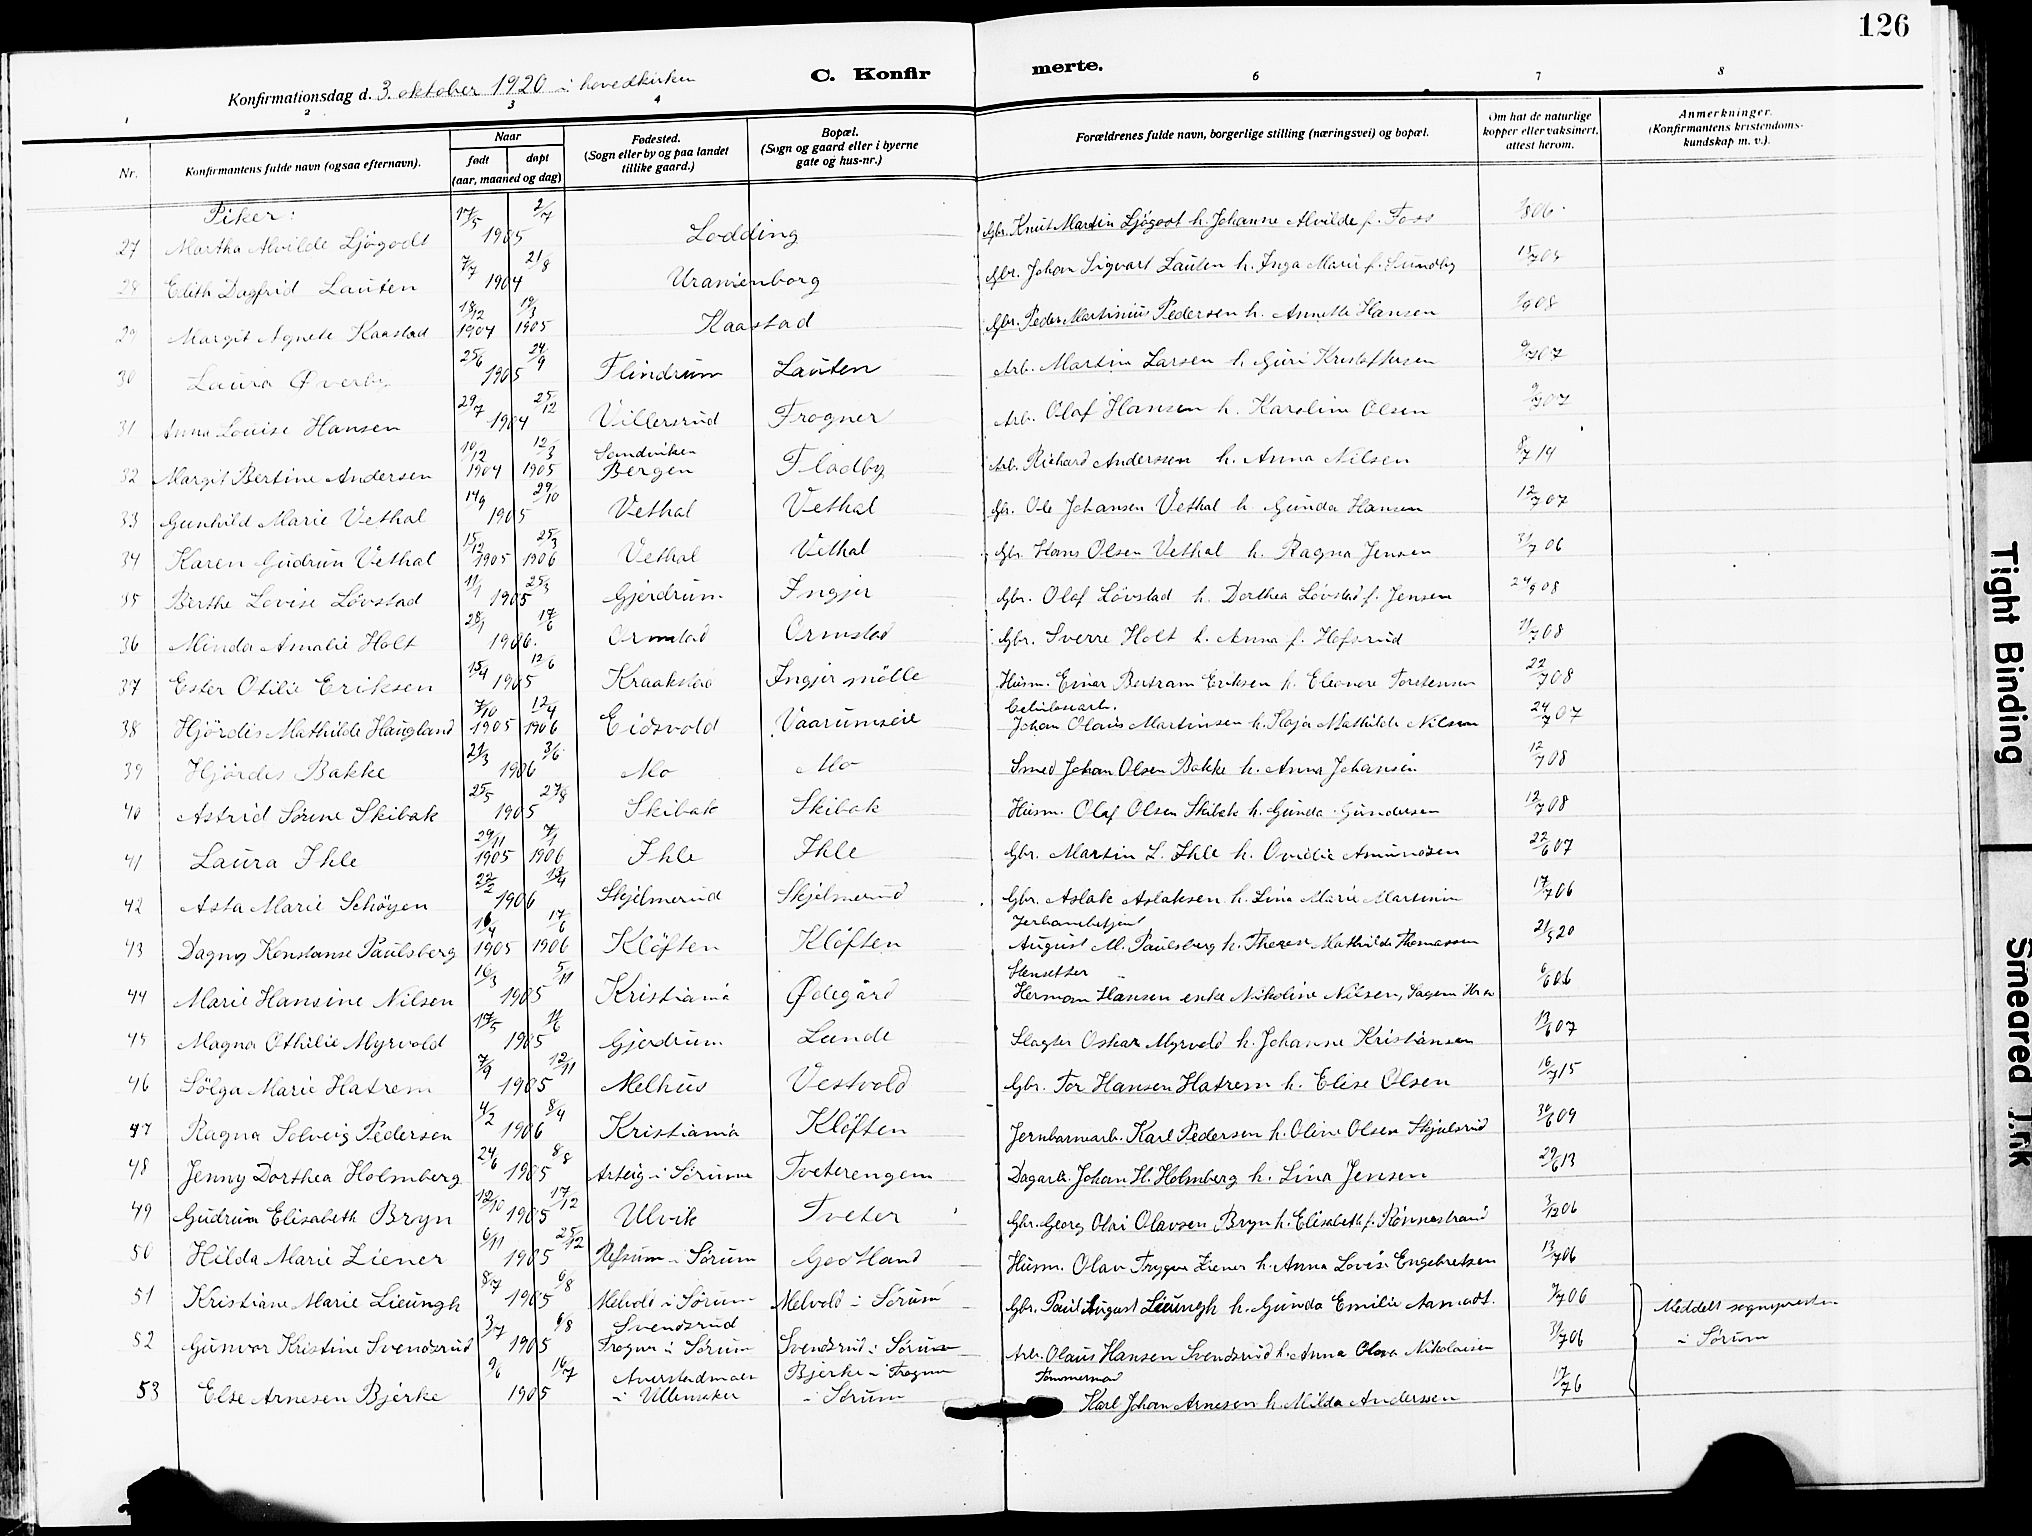 126
C. Konfirmerte.
Konfirmationsdag d. 3. oktober 1920 i hovedkirken
1 2 3 4 6 7 8
Nr. Konfirmantens fulde navn (ogsaa efternavn). Naar født døpt (aar, maaned og dag) Fødested. (Sogn eller by og paa landet tillike gaard.) Bopæl. (Sogn og gaard eller i byerne gate og hus-nr.) Forældrenes fulde navn, borgerlige stilling (næringsvei) og bopæl. Om hat de naturlige kopper eller vaksinert, attest herom. Anmerkninger. (Konfirmantens kristendoms-kundskap m. v.).
Piker:
27 Martha Alvilde Ljøgodt 17/5 2/7 1905 Lodding Gbr. Knut Martin Ljøgodt h. Johanne Alvilde f. Foss
28 Edith Dagfrid Lauten 7/7 21/8 1904 Uranienborg Gbr. Johan Sigvart Lauten h. Inga Marie f. Sundby
29 Margit Agnete Kaastad 18/12 1904 19/3 1905 Kaastad Gbr. Peder Martinius Pedersen h. Annette Hansen
30 Laura Øverby 25/6 24/9 1905 Flindrum Lauten Arb. Martin Larsen h. Guri Kristoffersen
31 Anna Louise Hansen 29/7 25/12 1904 Villersrud Frogner Arb. Olaf Hansen h. Karoline Olsen
32 Margit Bertine Andersen 10/12 1904 12/3 1905 Sandviken Bergen Fladby Arb. Richard Anderssen h. Anna Nilsen 8/7 14
33 Gunhild Marie Vethal 14/9 29/10 1905 Vethal Vethal Gbr. Ole Johansen Vethal h. Gunda Hansen 12/7 07
34 Karen Gudrun Vethal 15/12 1905 25/3 1906 Vethal Vethal Gbr. Hans Olsen Vethal h. Ragna Jensen 31/7 06
35 Birthe Lovise Løvstad 11/1 25/3 1905 Gjerdrum Ingjer Gbr. Olaf Løvstad h. Dorthea Løvstad f. Jensen 24/9 08
36 Minda Amalie Holt 28/1 17/6 1906. Ormstad Ormstad Gbr. Sverre Holt h. Anna f. Hofsrud 11/7 08
37 Ester Otilie Eriksen 15/4 12/6 1905 Kraakstad Ingjer mølle Husm. Einar Bertram Eriksen h. Eleonore Torstensen 22/7 08
38 Hjördis Mathilde Haugland 7/10 1905 12/4 1906 Eidsvold Vaarumseie Celulosearb. Johan Olaus Martinsen h. Kaja Mathilde Nilsen 24/7 07
39 Hjørdis Bakke 21/3 3/6 1906 Mo Mo Smed Johan Olsen Bakke h. Anna Johansen 12/7 08
40 Astrid Sørine Skibak 25/5 27/8 1905 Skibak Skibak Husm. Olaf Olsen Skibak h. Gunda Gundersen 12/7 08
41 Laura Ihle 29/11 1905 7/1 1906 Ihle Ihle Gbr. Martin L. Ihle h. Ovidie Amundsen 22/6 07
42 Asta Marie Schøyen 22/2 1906 Skjelmerud Skjelmerud Gbr. Aslak Aslaksen h. Lina Marie Martinsen 17/7 06
43 Dagny Konstanse Paulsberg 16/4 1905 17/6 1906 Kløften Kløften Jerbanebetjent August M. Paulsberg h. Therese Mathilde Thomassen 21/5 20
44 Marie Hansine Nilsen 16/3 5/11 1905 Kristiania Ødegård Stensetter Herman Hansen enke Nikoline Nilsen, 6/6 06
45 Magna Othilie Myrvold 17/5 11/6 1905 Gjerdrum Lunde Slagter Oskar Myrvold h. Johanne Kristiansen 13/6 07
46 Sólga Marie Hatrem 7/9 12/11 1905 Melhus Vestvold Gbr. Tor Hansen Hatrem h. Elise Olsen 16/7 15
47 Ragna Solveig Pedersen 4/2 8/4 1906 Kristiania Kløften Jernbanearb. Karl Pedersen h. Oline Olsen Skjelsrud 30/6 09
48 Jenny Dorthea Holmberg 24/6 8/8 1905 Arteig i Sørum Tveterengen Dagarb. Johan H. Holmberg h. Lina Jensen 29/6 13
49 Gudrun Elisabeth Bryn 12/10 17/12 1905 Ulvik Tveter Gbr. Georg Olai Olavsen Bryn h. Elisabeth f. Rønnestrand 3/12 06
50 Hilda Marie Ziener 6/11 25/12 1905 Refsum i Sørum Godtland Husm. Olav Trygve Ziener h. Anna Lovise Engebretsen 13/7 06
51 Kristiane Marie Lieungh 8/7 6/8 1905 Melvold i Sørum Melvold i Sørum Gbr. Paul August Lieungh h. Gunda Emilie Aamodt. 9/7 06 Meddelt sognepresten
52 Gunvor Kristine Svendsrud 3/7 6/8 1905 Svendsrud Frogner i Sørum Svendsrud i Sørum Arb. Olaus Hansen Svendsrud h. Anna Olava Nikolaisen 31/7 06 i Sørum
53 Else Arnesen Bjerke 9/6 16/7 1905 i Ullensaker Bjerke i Frogner i Sørum Tømmermand Karl Johan Arnesen h. Milda Anderssen 17/7 6
Tight Binding
Smeared Ink